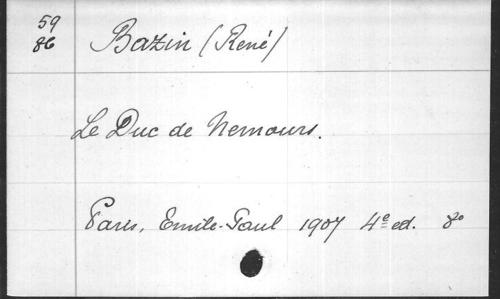 59
86
Bazin (René)
Le Duc de Nemours.
Paris, Emile-Paul 1907 4e ed. 8o